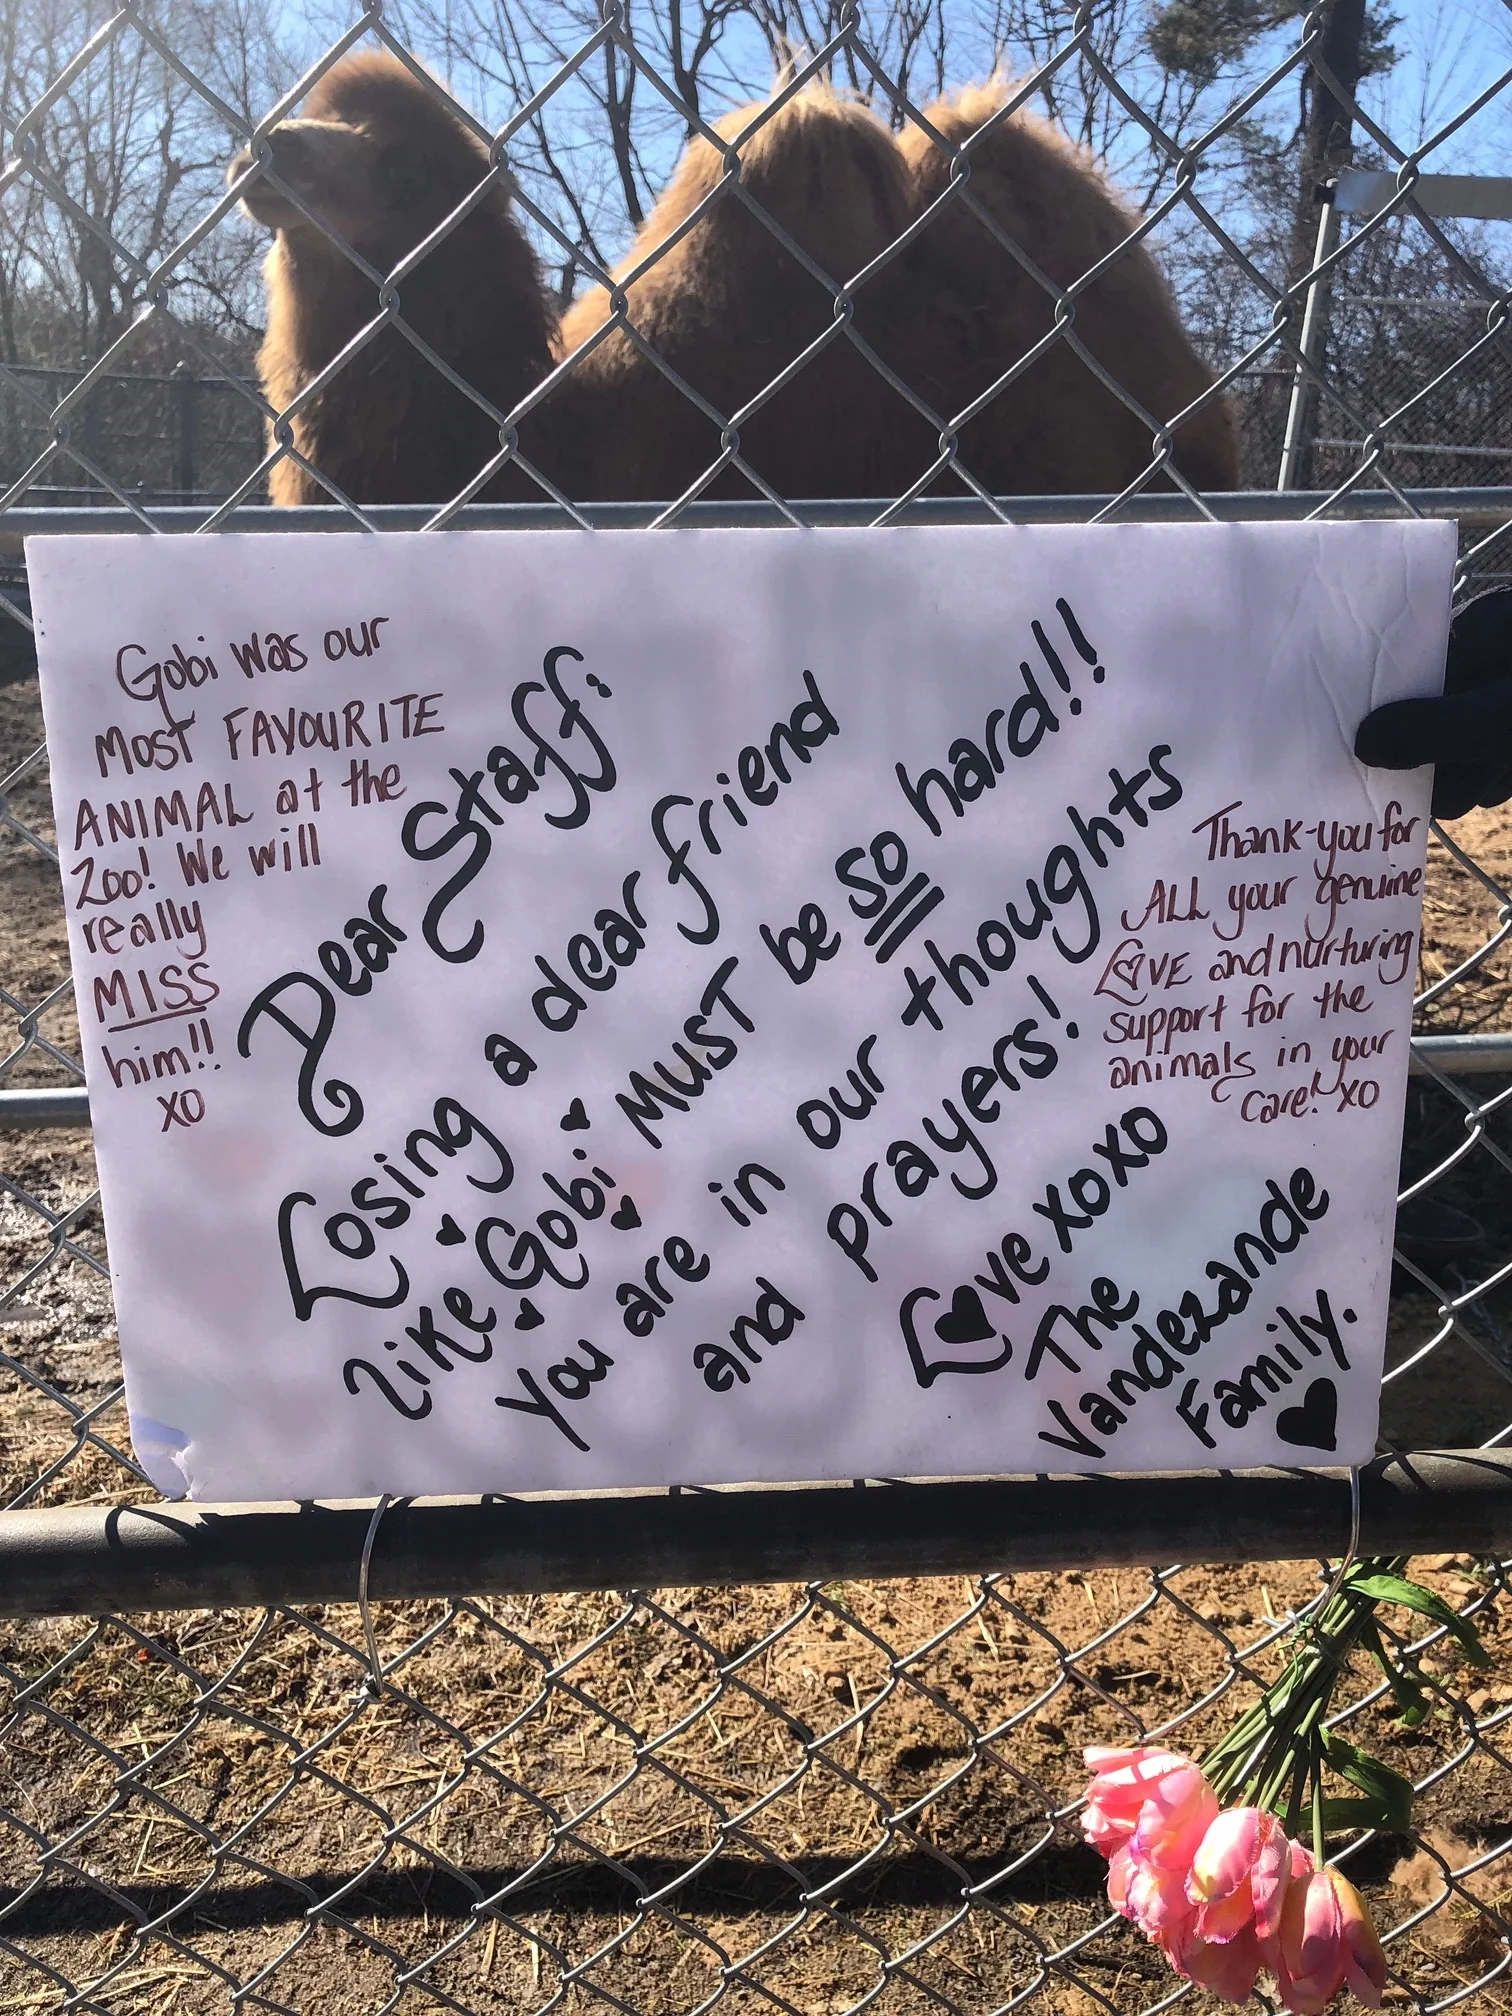 Gobi was our
MOST FAVOURITE
ANIMAL at the
Zoo! We will
really
MISS
him!!
xo
Dear Staff:
Losing a dear friend
like Gobi MUST be SO hard!!
You are in our thoughts
and prayers!
Love xoxo
The
Vandezande
Family.
Thank-you for
ALL your genuine
LOVE and nurturing
support for the
animals in your
care! xo